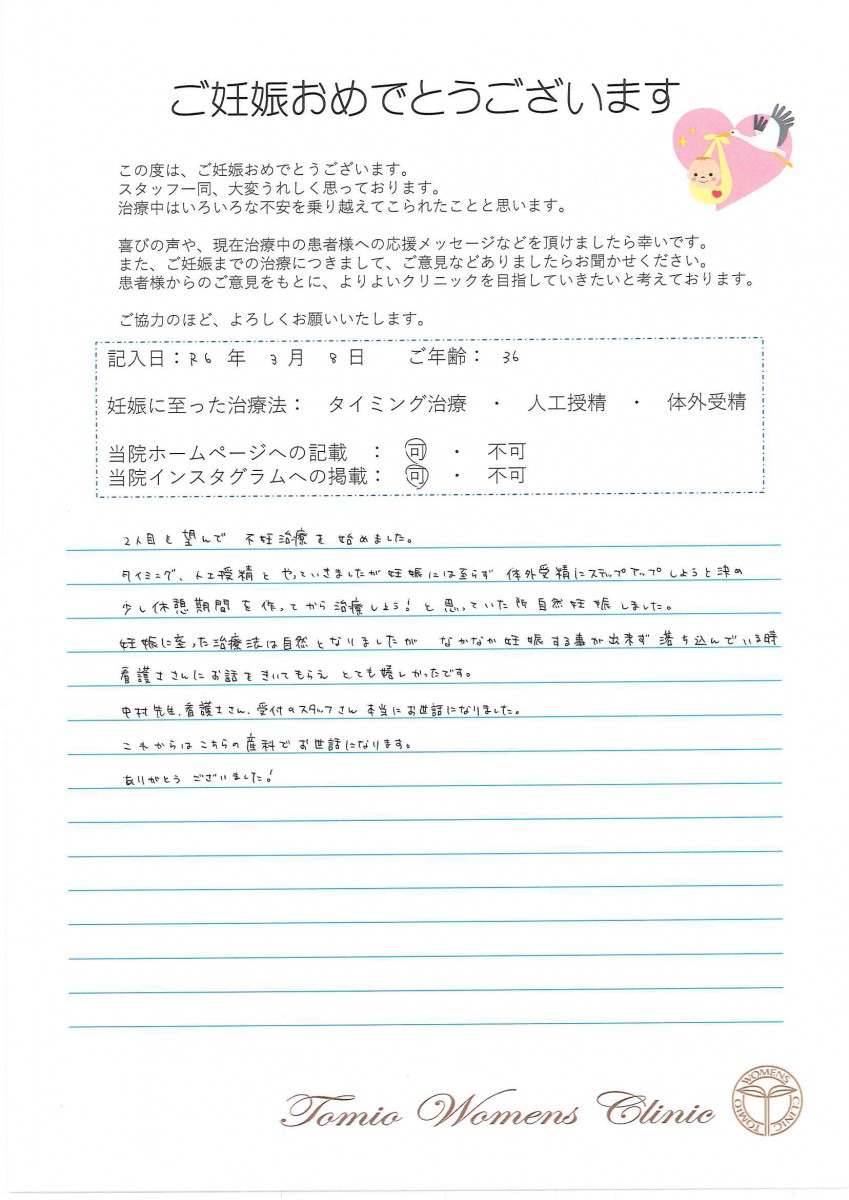 ご妊娠おめでとうございます
この度は、ご妊娠おめでとうございます。
スタッフ一同、大変うれしく思っております。
治療中はいろいろな不安を乗り越えてこられたことと思います。
喜びの声や、現在治療中の患者様への応援メッセージなどを頂けましたら幸いです。
また、ご妊娠までの治療につきまして、ご意見などありましたらお聞かせください。
患者様からのご意見をもとに、よりよいクリニックを目指していきたいと考えております。
ご協力のほど、よろしくお願いいたします。
記入日：R6 年 3月 8日 ご年齢： 36
妊娠に至った治療法： タイミング治療 ・ 人工授精 ・ 体外受精
当院ホームページへの記載 ： 可 ・ 不可
当院インスタグラムへの掲載： 可 ・ 不可
2人目を望んで 不妊治療を始めました。
タイミング、人工授精と やっていきましたが 妊娠には至らず 体外受精にステップアップしようと決め
少し休憩期間を作ってから治療しよう！と思っていた所 自然妊娠しました。
妊娠に至った治療法は自然となりましたが なかなか妊娠する事が出来ず 落ち込んでいる時
看護士さんにお話をきいてもらえ とても嬉しかったです。
中村先生、看護士さん、受付のスタッフさん 本当にお世話になりました。
これからはこちらの産科でお世話になります。
ありがとう ございました！
Tomio Womens Clinic
TOMIO WOMENS CLINIC